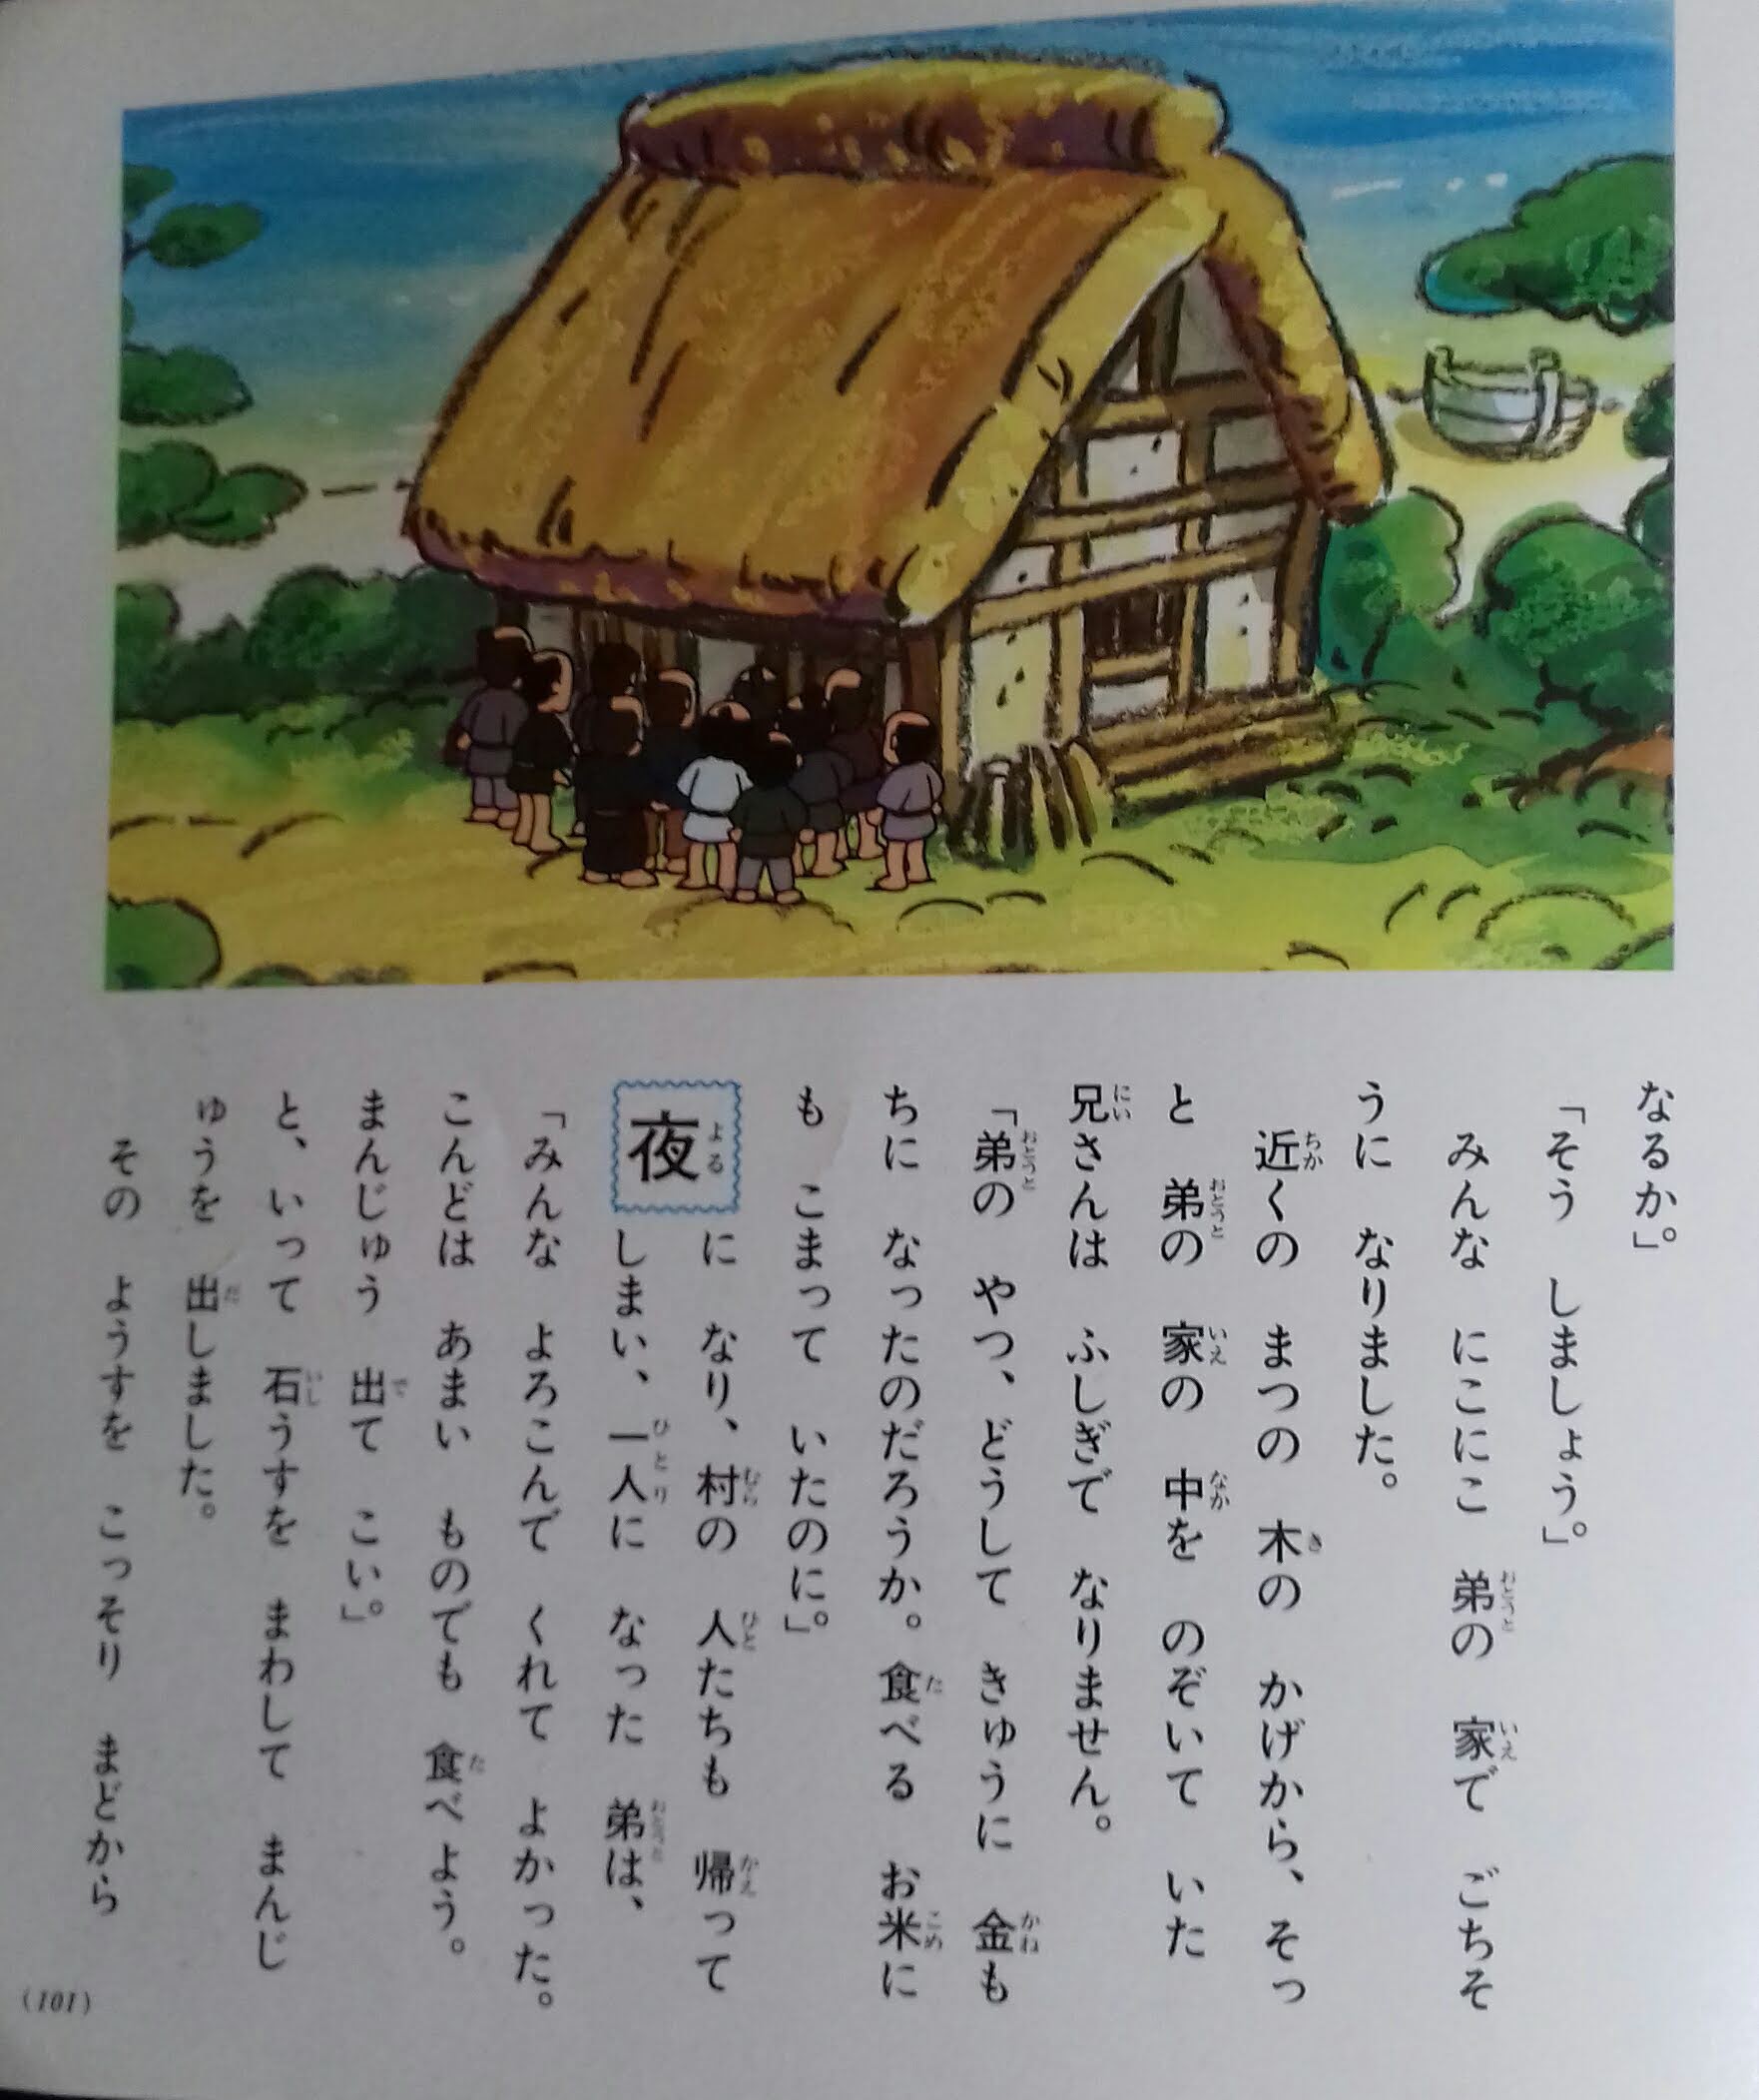 なるか。」
「そう しましょう。」
みんな にこにこ 弟の 家で ごちそ
うに なりました。
近くの まつの 木の かげから、そっ
と 弟の 家の 中を のぞいて いた
兄さんは ふしぎで なりません。
「弟の やつ、どうして きゅうに 金も
ちに なったのだろうか。食べる お米に
も こまって いたのに」。
夜に なり、村の 人たちも 帰って
しまい、一人に なった 弟は、
「みんな よろこんで くれて よかった。
こんどは あまい ものでも 食べよう。
まんじゅう 出て こい」。
と、いって 石うすを まわして まんじ
ゅうを 出しました。
その ようすを こっそり まどから
(101)